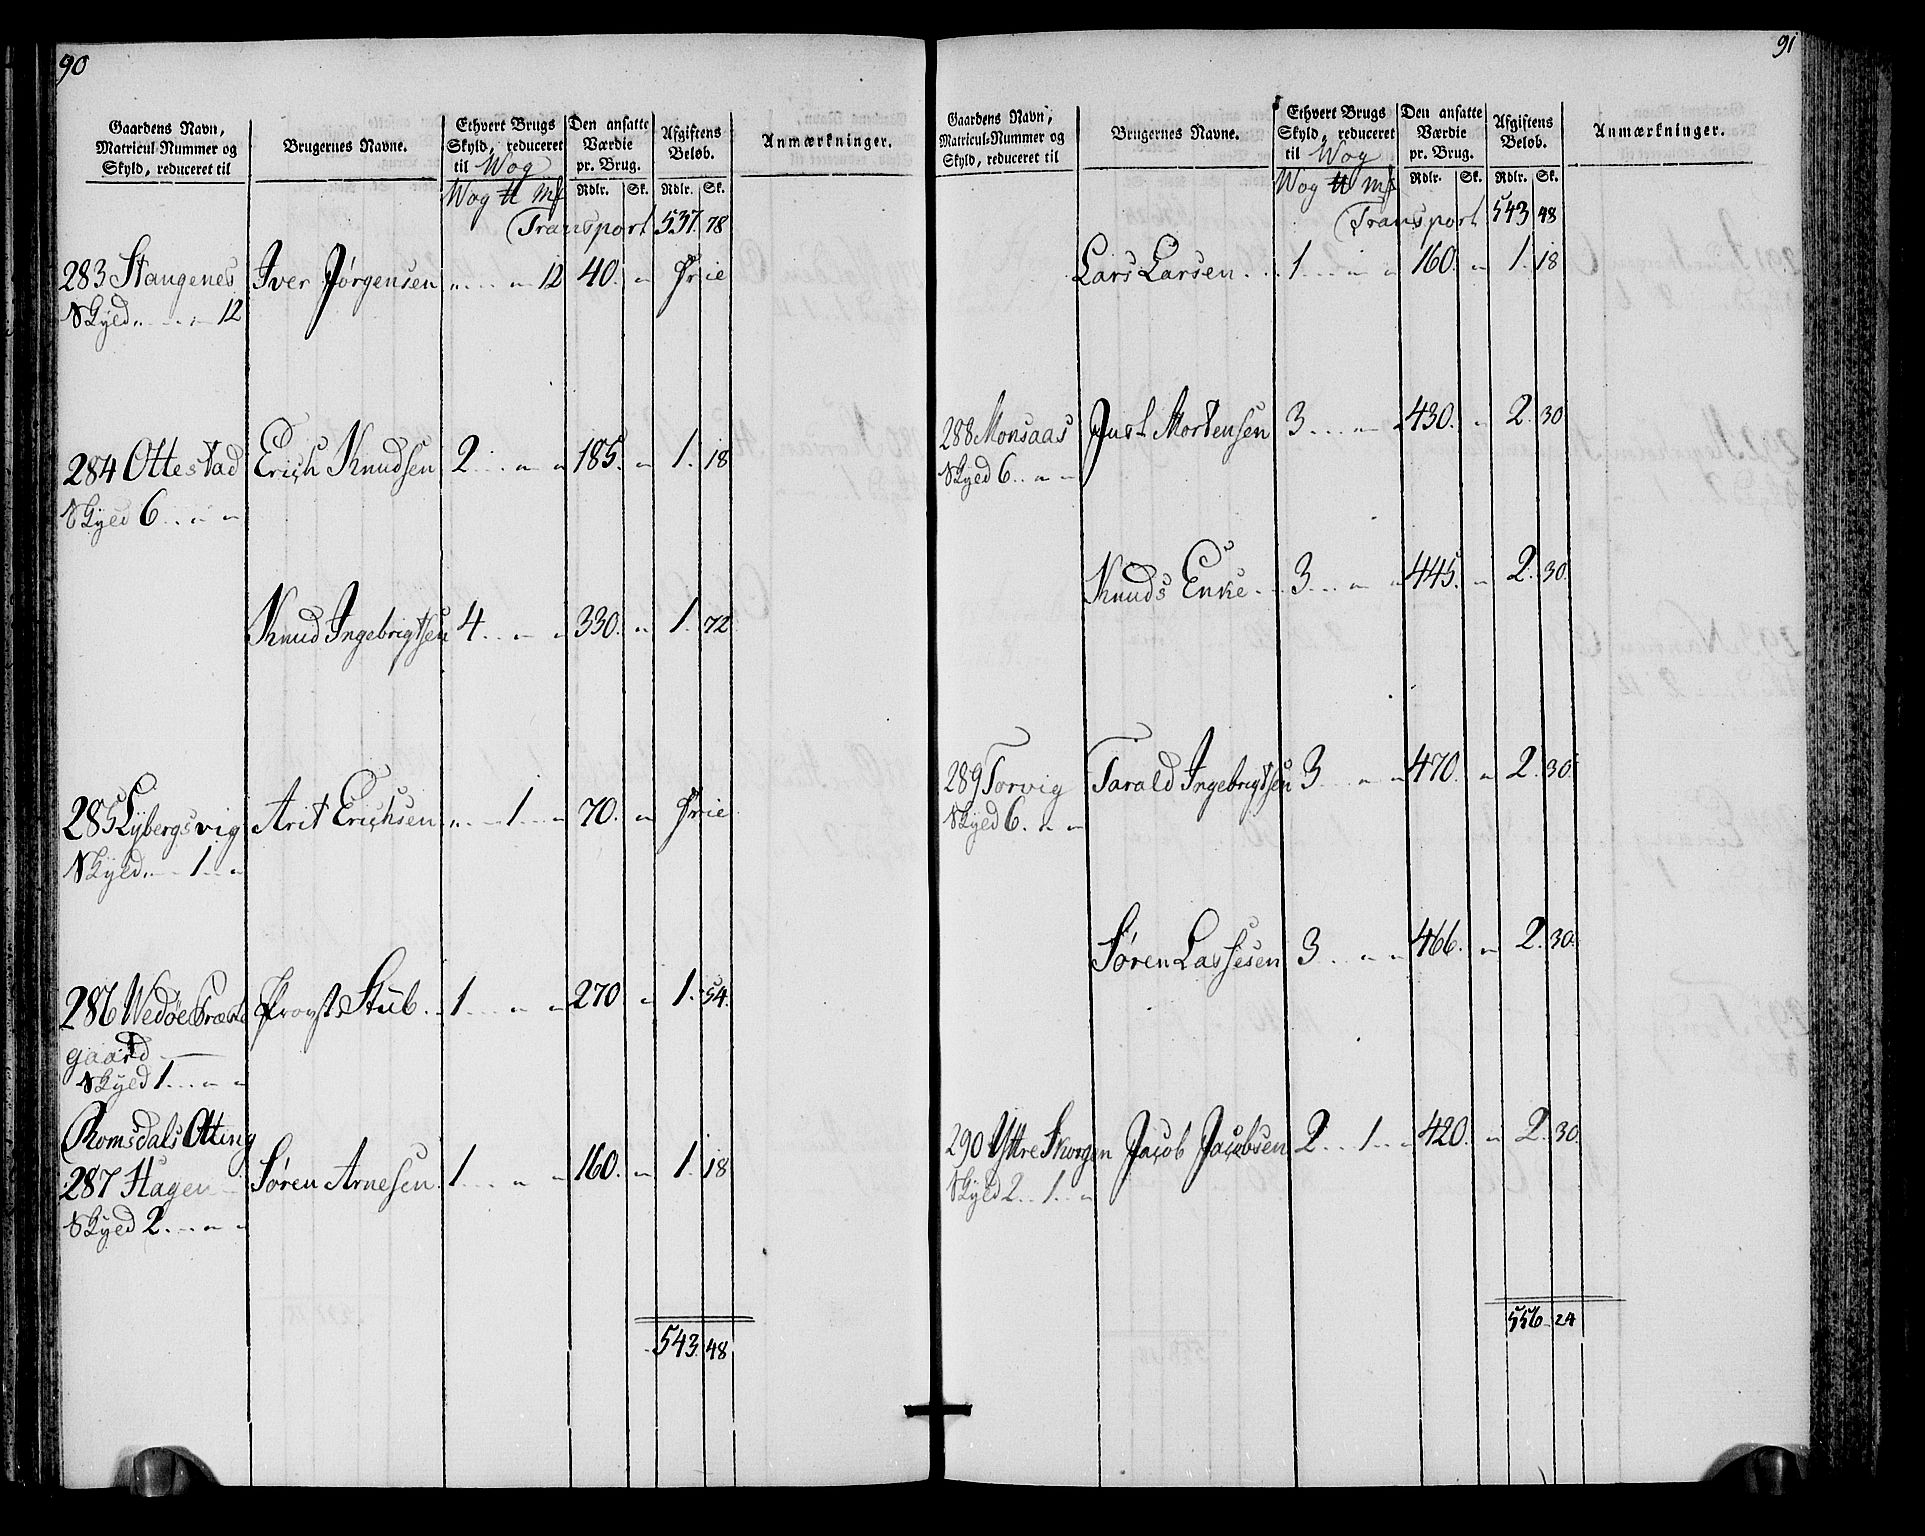 90
Gaardens Navn, Matricul-Nummer og Skyld, reduceret til | Brugernes Navne. | Ethvert Brugs Skyld, reduceret til Wog | Den ansatte Værdie pr. Brug. | Afgiftens Beløb. | Anmærkninger.
Wog ℔ mf | Rdlr. | Sk. | Rdlr. | Sk.
Transport 537. 78
283 Stangenes | Iver Jørgensen | „ . . „ 12 | 40. „ | frie
Skyld „ . „ 12
284 Ottestad | Erich Knudsen | 2 . . „ „ | 185. „ | 1. 18
Skyld 6 . . „ „
Knud Ingebrigtsen | 4 . . „ „ | 330. „ | 1. 72
285 Lybergsvig | Arit Erichsen | „ . . 1 . . „ | 70. „ | frie
Skyld „ . . 1 . . „
286 Wedøe Præste | Provst Stub | 1 . . „ „ | 270 „ | 1. 54.
gaard
Skyld 1 . . „ „
Romsdals Otting
287 Hagen | Søren Arnesen | 1 . . „ „ | 160. „ | 1. 18
Skyld 2 . . „ „
543. 48
91
Gaardens Navn, Matricul-Nummer og Skyld, reduceret til | Brugernes Navne. | Ethvert Brugs Skyld, reduceret til Wog | Den ansatte Værdie pr. Brug. | Afgiftens Beløb. | Anmærkninger.
Wog ℔ mf | Rdlr. | Sk. | Rdlr. | Sk.
Transport 543 48
Lars Larsen | 1 . . „ „ | 160. „ | 1. 18
288 Monsaas | Just Mortensen | 3 . . „ „ | 430. „ | 2. 30
Skyld 6 . . „ „
Knuds Enke | 3 . . „ „ | 445. „ | 2. 30.
289 Torvig | Tarald Ingebrigtsen | 3 . . „ „ | 470. „ | 2. 30.
Skyld 6. „ „
Søren Lassesen | 3 . . „ „ | 466. „ | 2. 30.
290 Yttre Skorgen | Jacob Jacobsen | 2 . . 1 . . „ | 420. „ | 2. 30.
Skyld 2 . . 1 . . „
556. 24